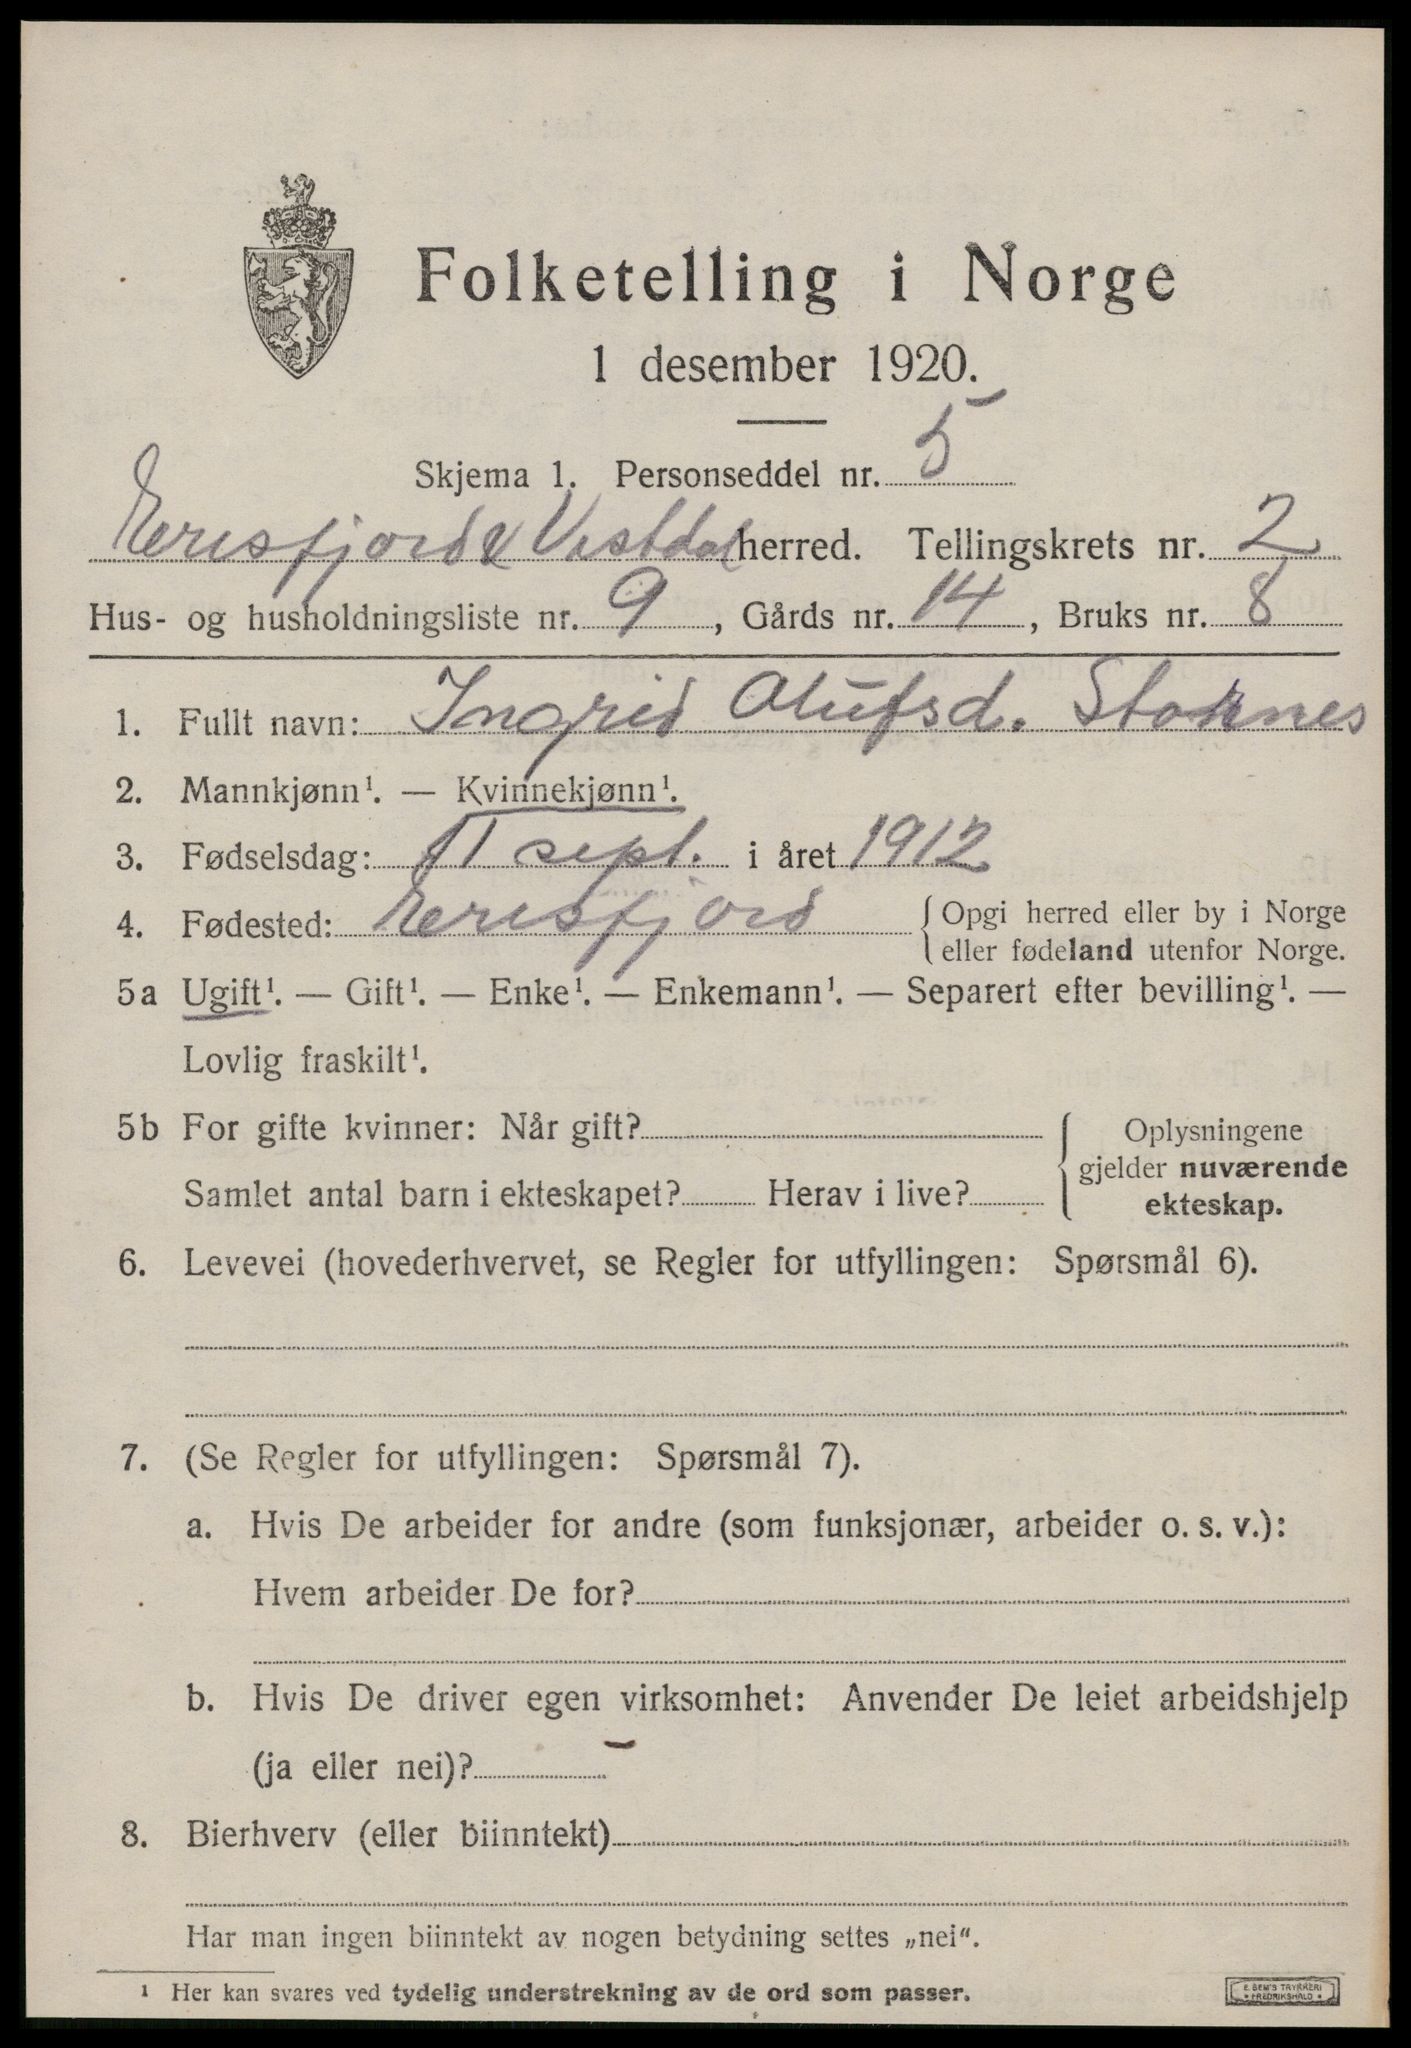 Folketelling i Norge
1 desember 1920.
Skjema 1. Personseddel nr. 5
Eresfjord & Vistdal herred. Tellingskrets nr. 2
Hus- og husholdningsliste nr. 9, Gårds nr. 14, Bruks nr. 8
1. Fullt navn: Ingrid Olufsd. Stornes
2. Mannkjønn¹. — Kvinnekjønn¹.
3. Fødselsdag: 11 sept. i året 1912
4. Fødested: Eresfjord { Opgi herred eller by i Norge
eller fødeland utenfor Norge.
5a Ugift¹. — Gift¹. — Enke¹. — Enkemann¹. — Separert efter bevilling¹. —
Lovlig fraskilt¹.
5b For gifte kvinner: Når gift?
Samlet antal barn i ekteskapet? Herav i live?
Oplysningene
gjelder nuværende
ekteskap.
6. Levevei (hovederhvervet, se Regler for utfyllingen: Spørsmål 6).
7. (Se Regler for utfyllingen: Spørsmål 7).
a. Hvis De arbeider for andre (som funksjonær, arbeider o. s. v.):
Hvem arbeider De for?
b. Hvis De driver egen virksomhet: Anvender De leiet arbeidshjelp
(ja eller nei)? –
8. Bierhverv (eller biinntekt)
Har man ingen biinntekt av nogen betydning settes „nei“.
¹ Her kan svares ved tydelig understrekning av de ord som passer.
E. SEM'S TRYKKERI
• FREDRIKSHALD •